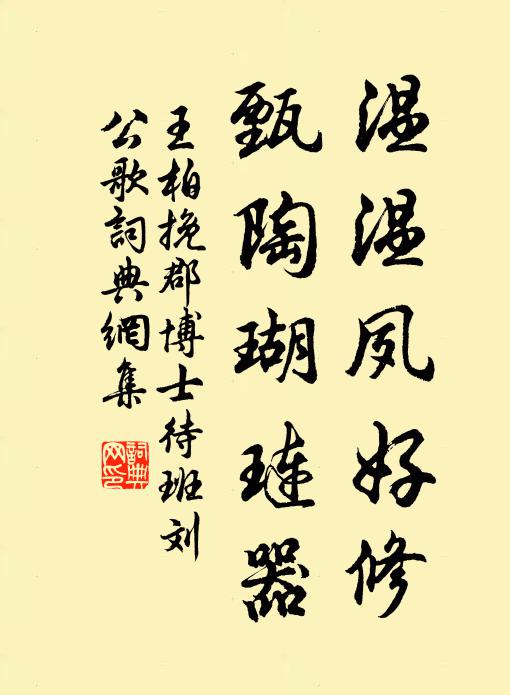 温温夙好修
甄陶瑚琏器
王柏挽郡博士待班刘
公歌詞典網集
詞典
网印